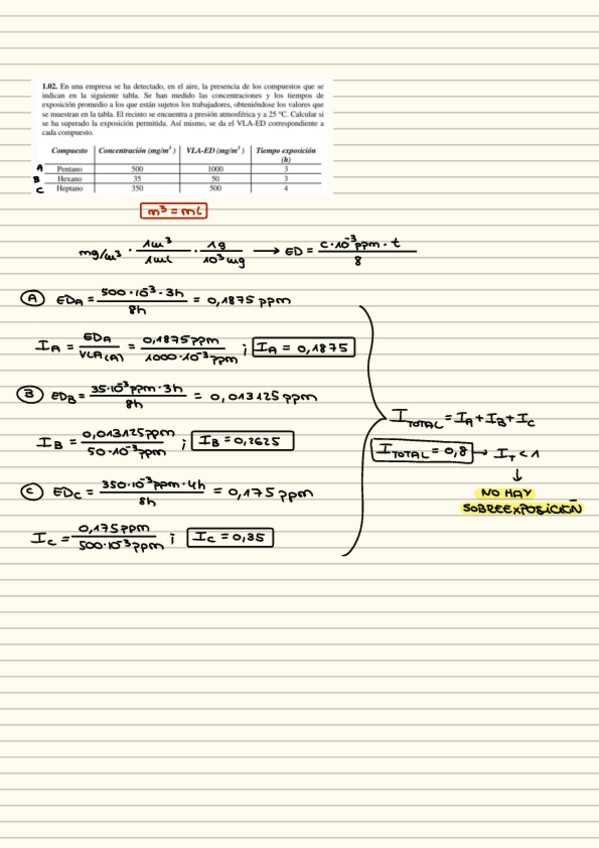 1.02. En una empresa se ha detectado, en el aire, la presencia de los compuestos que se
indican en la siguiente tabla. Se han medido las concentraciones y los tiempos de
exposición promedio a los que están sujetos los trabajadores, obteniéndose los valores que
se muestran en la tabla. El recinto se encuentra a presión atmosférica y a 25 ºC. Calcular si
se ha superado la exposición permitida. Así mismo, se da el VLA-ED correspondiente a
cada compuesto.
Compuesto Concentración (mg/m³) VLA-ED (mg/m³) Tiempo exposición (h)
A Pentano 500 1000 3
B Hexano 35 50 3
C Heptano 350 500 4
m³ = ml
mg/m³ · 1m³/1ml · 1g/10³mg → ED = C·10⁻³ppm·t/8
A ED_A = 500·10⁻³·3h/8h = 0,1875 ppm
I_A = ED_A/VLA(A) = 0,1875ppm/1000·10⁻³ppm ; I_A = 0,1875
B ED_B = 35·10⁻³ppm·3h/8h = 0,013125 ppm
I_B = 0,013125ppm/50·10⁻³ppm ; I_B = 0,2625
C ED_C = 350·10⁻³ppm·4h/8h = 0,175 ppm
I_C = 0,175ppm/500·10⁻³ppm ; I_C = 0,35
I_TOTAL = I_A + I_B + I_C
I_TOTAL = 0,8 → I_T < 1
↓
NO HAY
SOBREEXPOSICIÓN